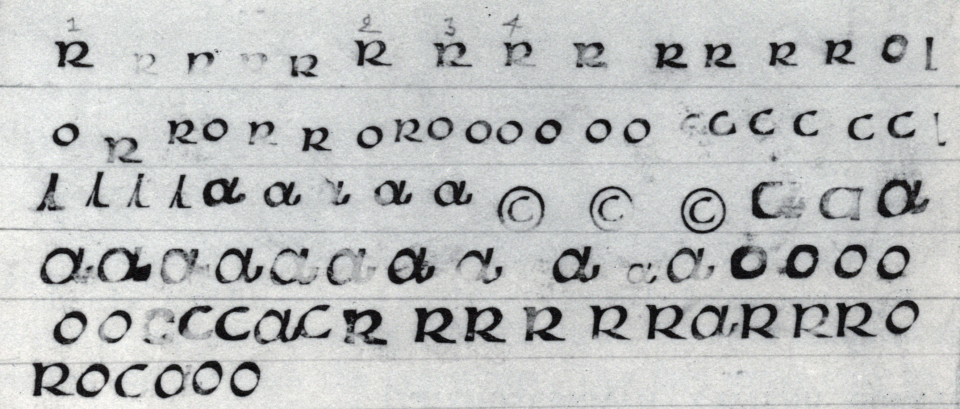 1 2 3 4
R R R R R R R R R R R R R R O L
O R R O R R O R O O O O O O C C C C C C L
l l l l a a a a a © © © C a a
a a a a a a a a a a a o o o o
o o C C C a C R R R R R R a R R R O
R O C O O O